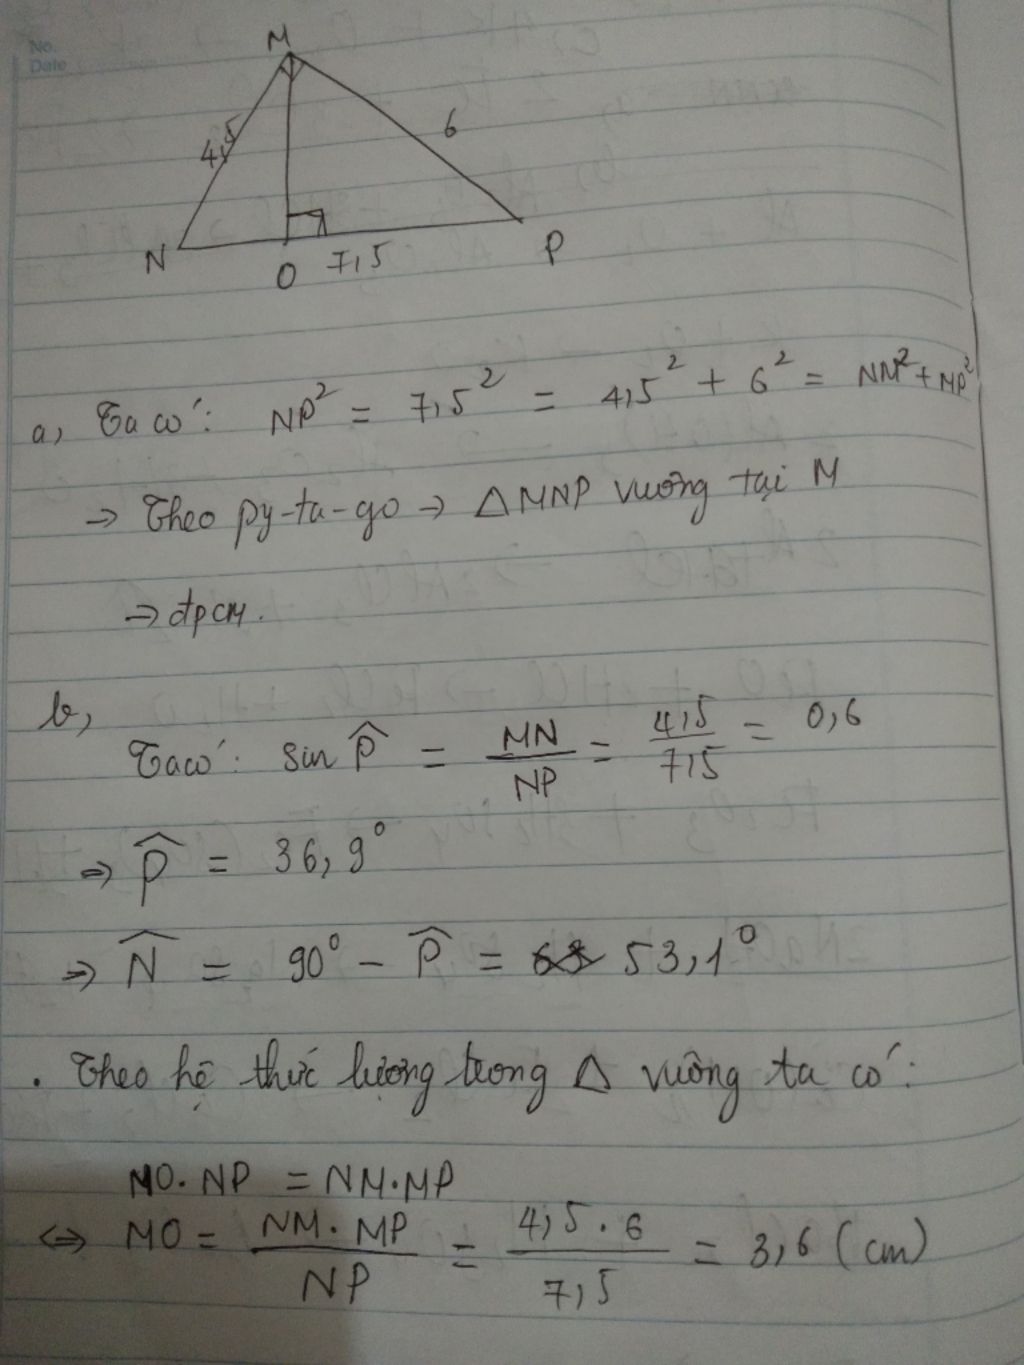 No.
Date
M
4,5
6
N
O
7,5
P
a, Ta có: NP² = 7,5² = 4,5² + 6² = NM² + MP²
→ Theo py-ta-go → △MNP vuông tại M
→ đpcm.
b,
Ta có: sin P̂ = MN/NP = 4,5/7,5 = 0,6
⇒ P̂ = 36,9°
⇒ N̂ = 90° - P̂ = 53,1°
. Theo hệ thức lượng trong △ vuông ta có:
MO.NP = NM.MP
⇔ MO = NM.MP/NP = 4,5.6/7,5 = 3,6 (cm)